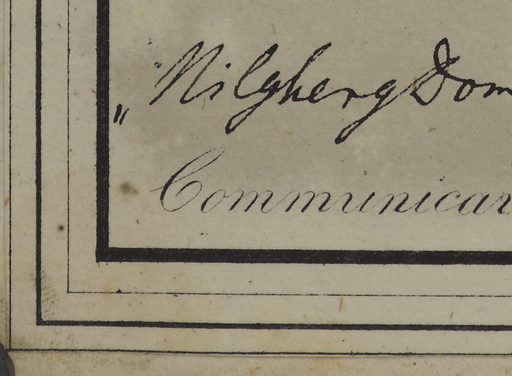 „Nilgherg Dom
Communicar